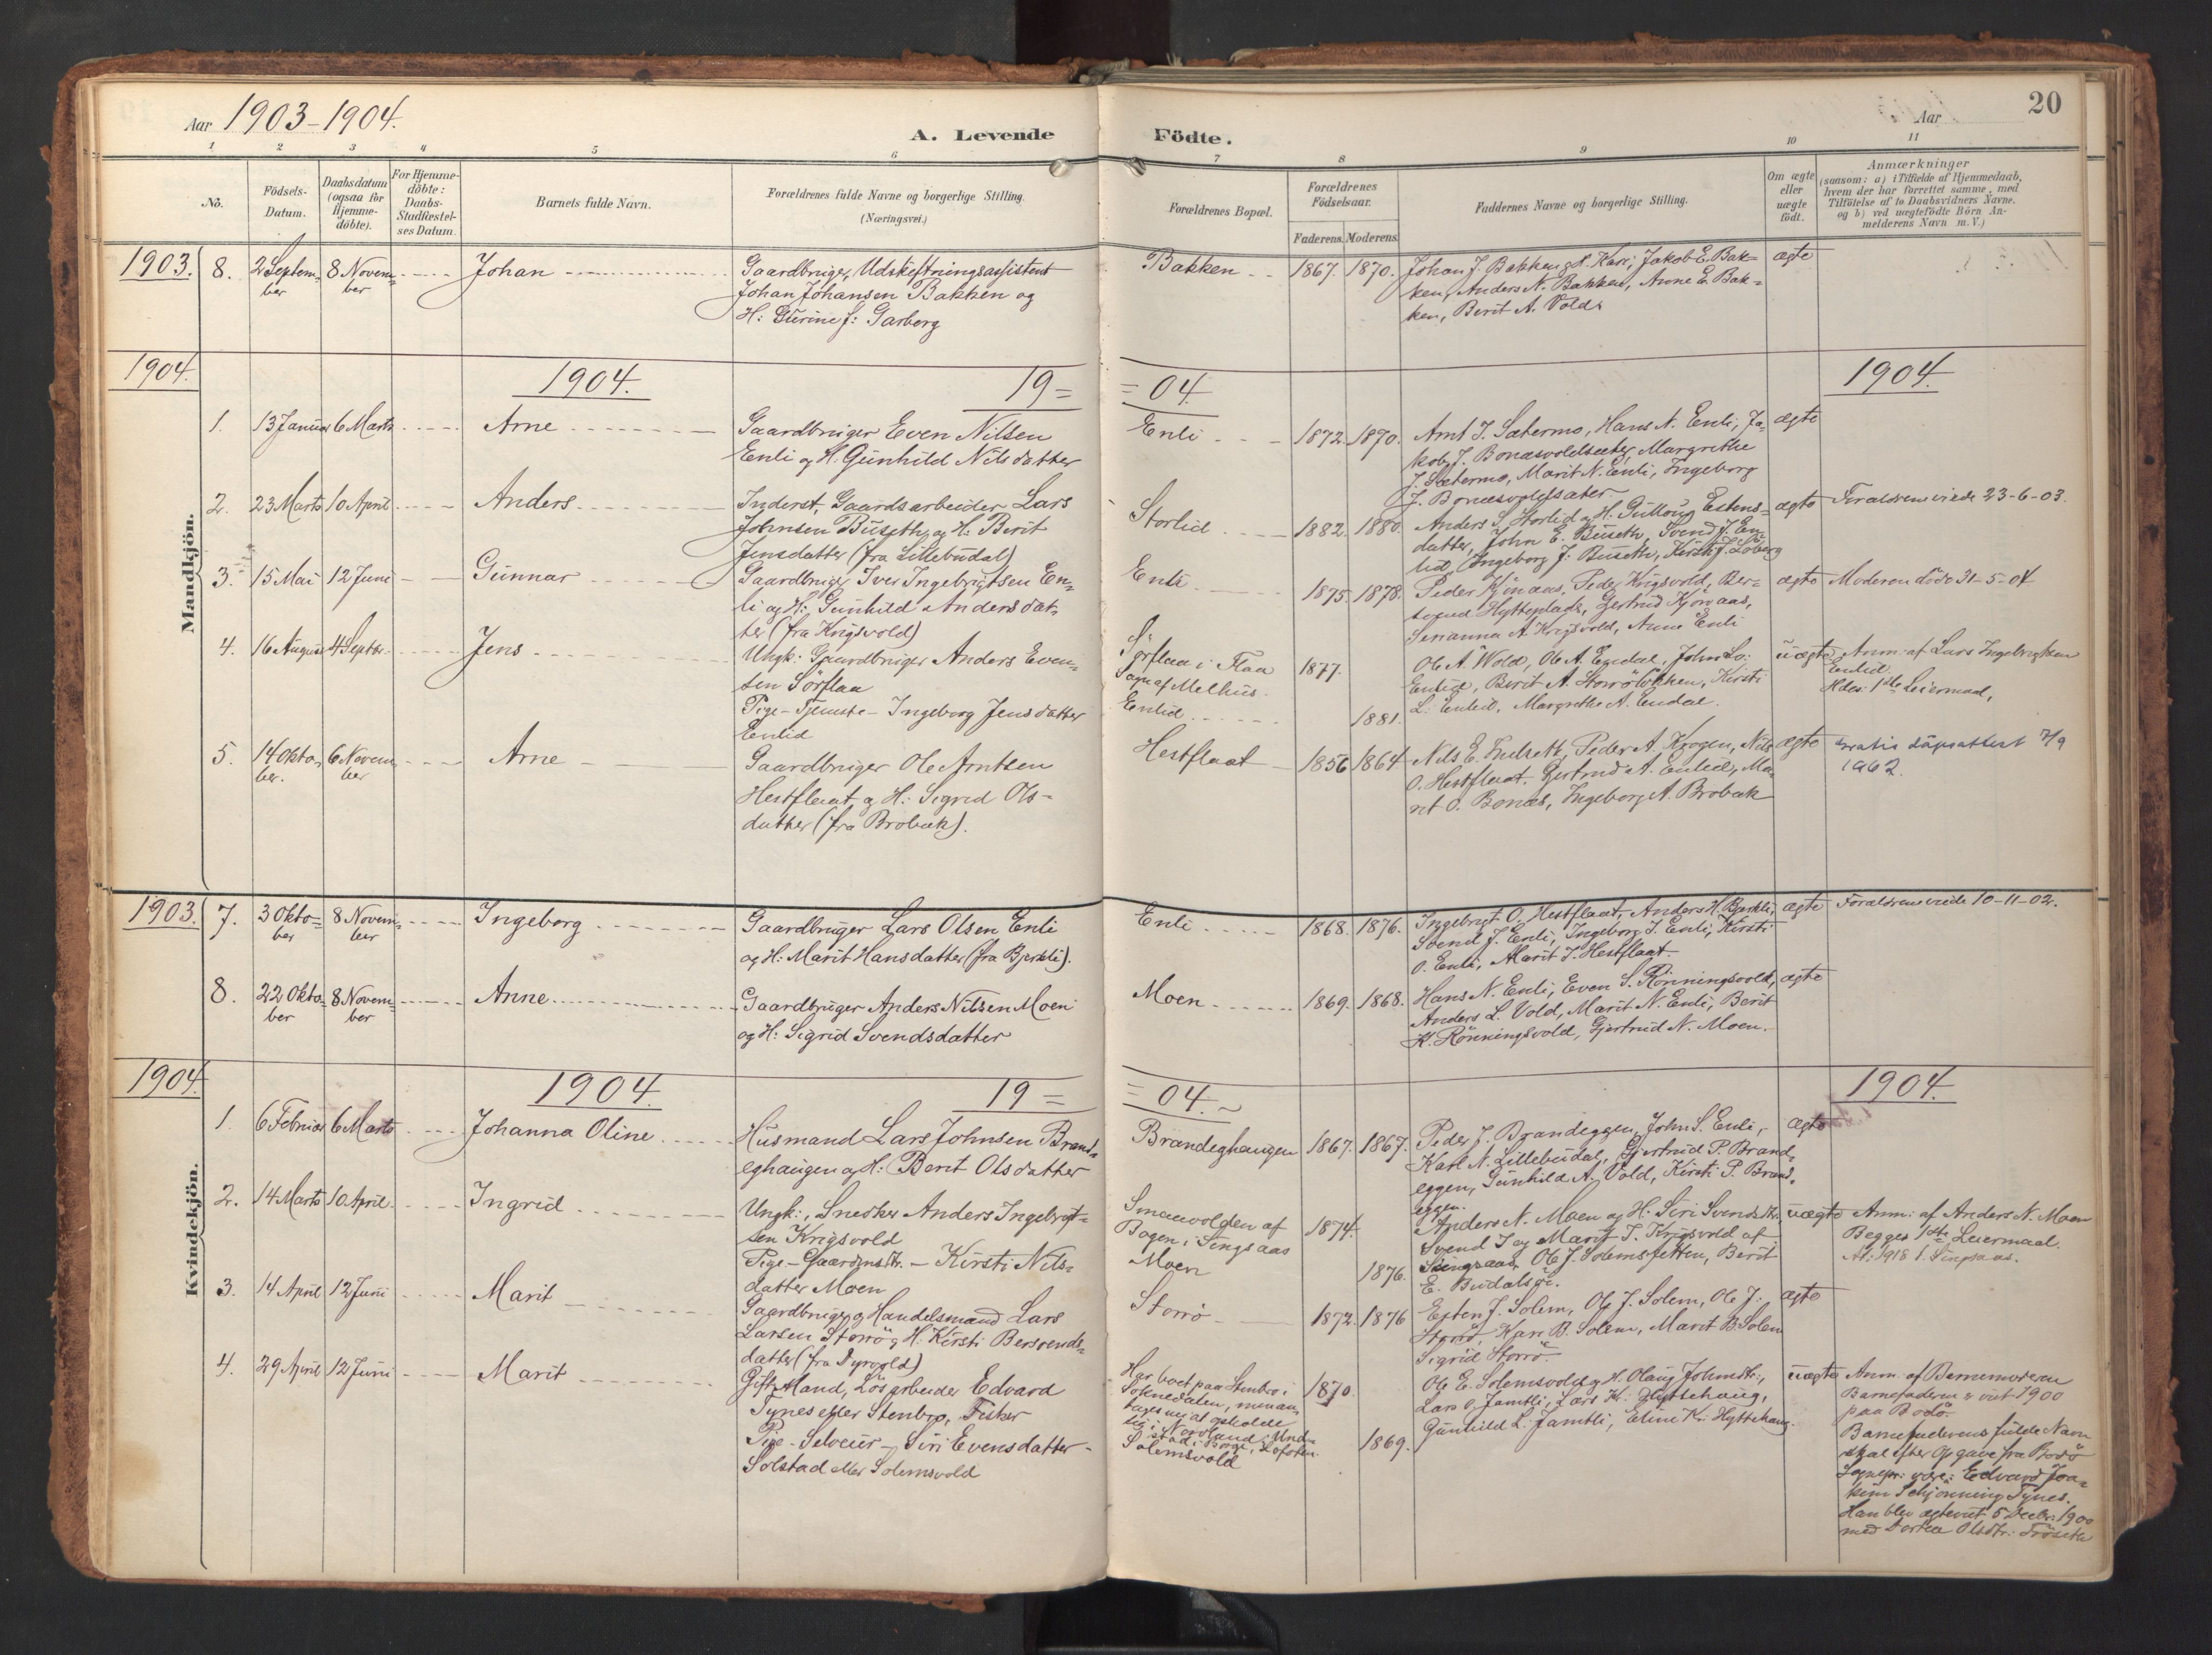 Aar 1903-1904.
A. Levende Födte.
Aar
20
1 2 3 4 5 6 7 8 9 10 11
No.
Födsels-Datum.
Daabsdatum (ogsaa for Hjemme-döbte).
For Hjemme-döbte: Daabs-Stadfæstel-ses Datum.
Barnets fulde Navn.
Forældrenes fulde Navne og borgerlige Stilling. (Næringsvei.)
Forældrenes Bopæl.
Forældrenes Födselsaar.
Faderens. Moderens.
Faddernes Navne og borgerlige Stilling.
Om ægte eller uægte födt.
Anmærkninger
(saasom: a) i Tilfælde af Hjemmedaab,
hvem der har forrettet samme, med
Tilföielse af to Daabsvidners Navne,
og b) ved uægtefödte Börn An-
melderens Navn m.V.)
Mandkjön.
1903. 8. 2 Septem-ber 8 Novem-ber Johan
Gaardbruger, Udskiftningsassistent
Johan Johansen Bakken og
H: Gurine f: Garberg
Bakken 1867. 1870.
Johan J. Bakken og H. Kari, Jakob E. Bak-
ken, Anders N. Bakken, Anne E. Bak-
ken, Berit A. Vold.
ægte
1904. 1904. 19= =04. 1904.
1. 13 Januar 6 Marts Arne
Gaardbruger Even Nilsen
Enli og H. Gunhild Nilsdatter
Enli 1872. 1870.
Arnt J. Sætermo, Hans N. Enli, Ja-
kob J. Bonæsvoldsæter, Margrethe
J. Sætermo, Marit N. Enli, Ingeborg
J. Bonæsvoldsæter
ægte
2. 23 Marts 10 April Anders
Inderst, Gaardsarbeider Lars
Johnsen Buseth og H: Berit
Jensdatter (fra Lillebudal)
Storlid 1882. 1880.
Anders S. Storlid og H. Gulloug Estens-
datter, John E. Buseth, Svend J. En-
lid, Ingeborg J. Buseth, Kirsti J. Löberg
ægte
Forældrene viede 23-6-03.
3. 15 Mai 12 Juni Gunnar
Gaardbruger Iver Ingebrigtsen En-
li og H: Gunhild Andersdat-
ter (fra Krigsvold)
Enli 1875. 1878.
Peder Kjönaas, Peder Krigsvold, Ber-
svend Hytteplads, Gjertrud Kjönaas,
A. Krigsvold, Anne Enli
ægte
Moderen döde 31-5-04
4. 16 August 4 Septbr. Jens
Ungk: Gaardbruger Anders Even-
sen Sörflaa
Pige-Tjeneste-Ingeborg Jensdatter
Enlid
Sörflaa i Flaa
Sogn af Melhus.
Enlid
1877.
1881.
Ole A. Wold, Ole A. Endal, John Lo:
Enlid, Berit A. Storrölökken, Kirsti
L. Enlid, Margrethe A. Endal.
uægte
Anm: af Lars Ingebrigtsen
Enlid
1ste Leiermaal.
5. 14 Okto-ber. 6 Novem-ber Arne
Gaardbruger Ole Arntsen
Hestflaat og H: Sigrid Ols-
datter (fra Brobæk).
Hestflaat 1856 1864
Nils E. Peder A. Krogen, Nils
O. Hestflaat. Gjertrud A. Enlid, Ma-
rit O. Bonæs, Ingeborg A. Brobæk
ægte
Gratis dåpsattest 7/9
1962.
Kvindekjön.
1903. 7. 3 Okto-ber 8 Novem-ber Ingeborg
Gaardbruger Lars Olsen Enli
og H: Marit Hansdatter (fra Bjerkli).
Enli 1868. 1876.
Ingebrigt O. Hestflaat, Anders H. Bjerkli,
Svend J. Enli, Ingeborg J. Enli, Kirsti
O. Enli, Marit J. Hestflaat.
ægte
Forældrene viede 10-11-02.
8. 22 Okto-ber 8 Novem-ber Anne
Gaardbruger Anders Nilsen Moen
og H: Sigrid Svendsdatter
Moen 1869. 1868.
Hans N. Enli, Even S. Rönningsvold,
Anders L. Vold, Marit N. Enli, Berit
K. Rönningsvold, Gjertrud N. Moen.
ægte
1904. 1904. 19= =04. 1904.
1. 6 Februar 6 Marts Johanna Oline
Husmand Lars Johnsen Brand-
eghaugen og H: Berit Olsdatter
Brandeghaugen 1867. 1867.
Peder J. Brandeggen, John S. Enli,
Karl N. Lillebudal, Gjertrud P. Brand-
eggen, Gunhild A. Vold, Kirsti P. Brand-
eggen.
ægte
2. 14 Marts 10 April. Ingrid
Ungk:, Snedker Anders Ingebrigt-
sen Krigsvold
Pige-Gaardmdtr.-Kirsti Nils-
datter Moen
Smaavolden af
Bogen i Singsaas
Moen
1874.
1876.
Anders N. Moen og H: Siri Svendsdtr.,
Svend J og Marit J. Krigsvold af
Singsaas, Ole J. Solemsletten, Berit
E. Budalsöi.
uægte
Anm: af Anders N. Moen
Begges 1ste Leiermaal.
At. 1918 t. Singsaas.
3. 14 April 12 Juni Marit
Gaardbruger og Handelsmand Lars
Larsen Storrö og H. Kirsti Bersvends-
datter (fra Dyrvold)
Storrö 1872. 1876
Esten J. Solem, Ole J. Solem, Ole J.
Storrö, Kari B. Solem, Marit B. Solem
Sigrid Storrö.
ægte
4. 29 April 12 Juni Marit
Gift Mand, Lösarbeider Edvard
Tynes eller Stenbro, Fisker
Pige-Selveier-Siri Evensdatter
Solstad eller Solemsvold
Har boet paa Stenbro i
Soknedalen, men an-
tages nu at opholde
sig i Nordland: Und-
stad i Borge, Lofoten.
Solemsvold
1870.
1869.
Ole E. Solemsvold og H. Olaug Johnsdtr.,
Lars O. Jamtli, Lars Kr. Hyttehaug,
Gunhild L. Jamtli, Eline K. Hyttehaug.
uægte
Anm: af Barnemoderen
Barnefaderen er viet 1900
paa Bodö.
Barnefaderens fulde Navn
skal efter Opgave fra Bodö
Sognepr: være: Edvard Joa-
kim Schjönning Tynes.
Han blev ægteviet 5 Decbr: 1900
med Dortea Olsdtr: Fröseth